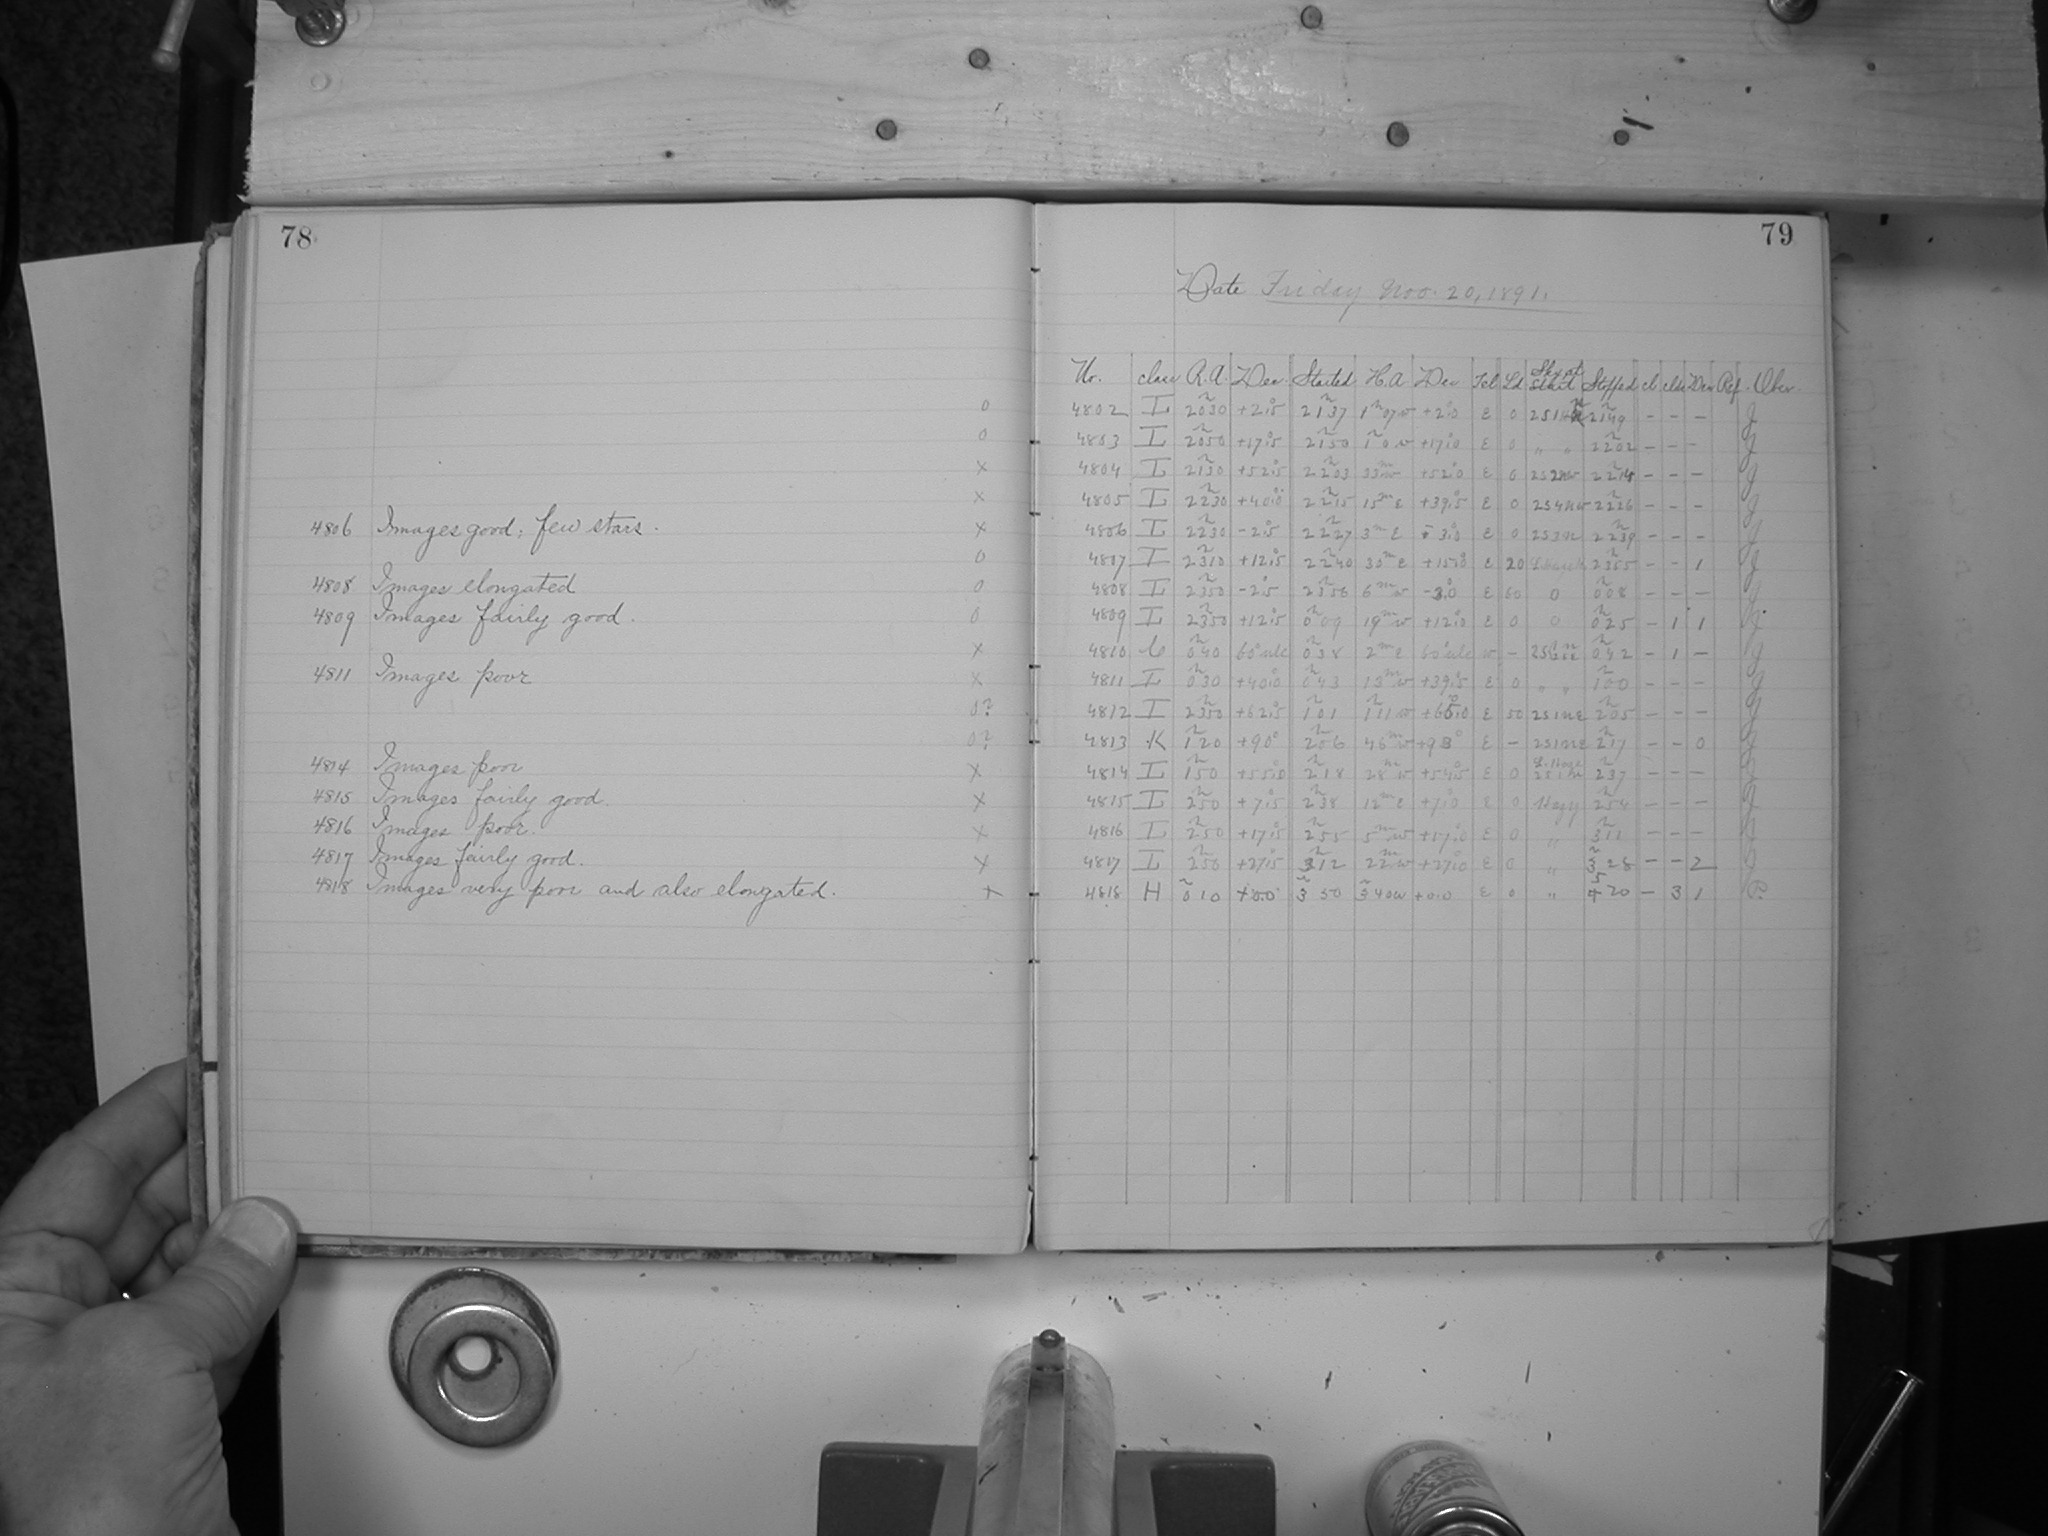 78
0
0
x
x
4806 Images good; few stars. x
0
4808 Images elongated 0
4809 Images fairly good. 0
x
4811 Images poor x
0?
0?
4814 Images poor x
4815 Images fairly good. x
4816 Images poor. x
4817 Images fairly good. x
4818 Images very poor and also elongated. x
79
Date Friday Nov. 20, 1891.
No. class R.A. Dec. Started H.A Dec Tel Ld Sky at start Stopped cl Clk Dev Ref. Obsr.
4802 I 20h30 +2°.5 21h37 1h07w +2°.0 E 0 21h49 - - -
4803 I 20h50 +17°.5 21h50 1h0w +17°.0 E 0 " " 22h02 - - -
4804 I 21h30 +52°.5 22h03 33mw +52°.0 E 0 22h14 - - -
4805 I 22h30 +40°.0 22h15 15mE +39°.5 E 0 254NW 22h26 - - -
4806 I 22h30 -2°.5 22h27 3mE -3°.0 E 0 253N 22h39 - - -
4807 I 23h10 +12°.5 22h40 30mE E 20 - - 1
4808 I 23h50 -2°.5 23h56 6mw -3°.0 E 60 0 0h08 - - -
4809 I 23h50 +12°.5 0h09 19mw +12°.0 E 0 0 0h25 - 1 1
4810 0h40 0h38 2mE w - 0h42 - 1 -
4811 I 0h30 +40°.0 0h43 13mw +39°.5 E 0 " " 1h00 - - -
4812 I 23h50 +62°.5 1h01 1h11w E 50 251NE 2h05 - - -
4813 K 1h20 +90° 2h06 46mw E - 251NE 2h17 - - 0
4814 I 1h50 +55°.0 2h18 28mw +54°.5 E 0 2h37 - - -
4815 I 2h50 +7°.5 2h38 12mE +7°.0 E 0 Hazy 2h54 - - -
4816 I 2h50 +17°.5 2h55 5mw +17°.0 E 0 " 3h11 - - -
4817 I 2h50 +27°.5 3h12 22mw +27°.0 E 0 " 3h28 - - 2
4818 H 0h10 +0.0 3h50 3h40w +0.0 E 0 " 20 - 3 1